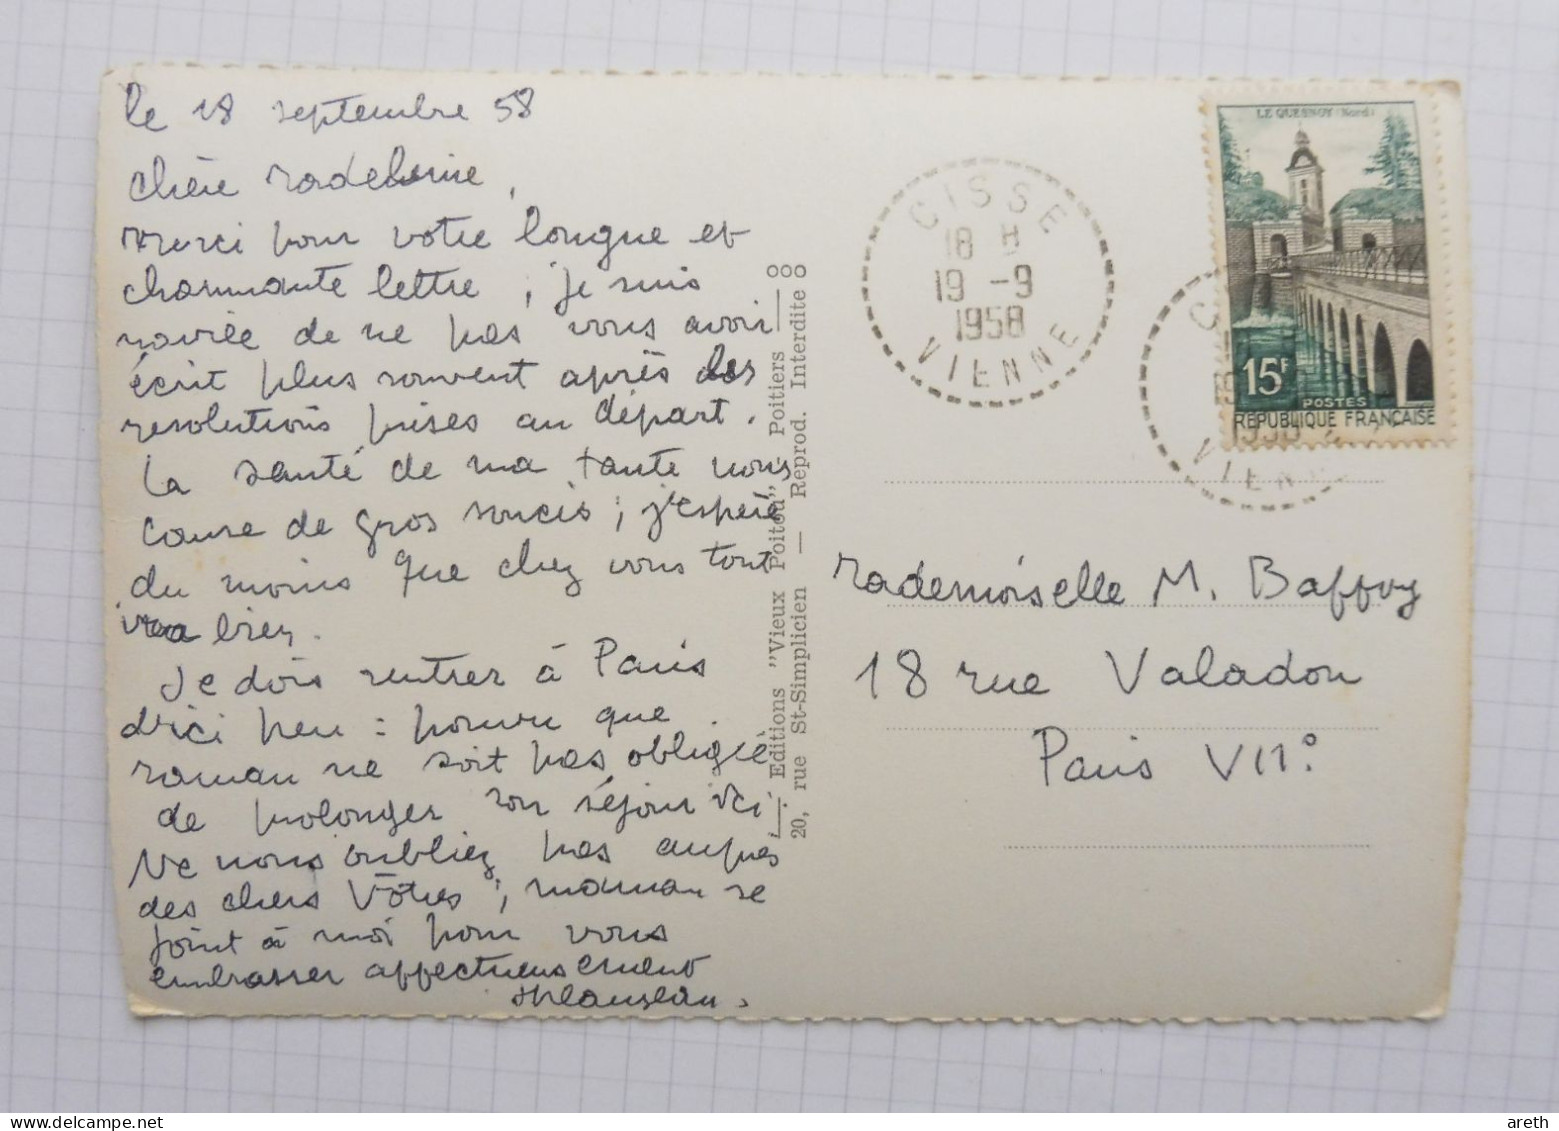 le 18 septembre 58
Chère Madeleine,
Merci pour votre longue et
charmante lettre ; je suis
navrée de ne pas vous avoir
écrit plus souvent après les
resolutions prises au départ.
La santé de ma tante nous
cause de gros soucis ; j'espère
du moins que chez vous tout
va bien.
Je dois rentrer à Paris
d'ici peu : pourvu que
maman ne soit pas obligée
de prolonger son séjour ici
Ne nous oubliez pas auprès
des chers Vôtres ; maman se
joint à moi pour vous
embrasser affectueusement
Editions "Vieux Poitou" Poitiers
20, rue St-Simplicien — Reprod. Interdite
CISSE
18 H
19 -9
1958
VIENNE
LE QUESNOY (Nord)
15F
POSTES
REPUBLIQUE FRANÇAISE
VIENN
Mademoiselle M. Baffoy
18 rue Valadon
Paris VII°
areth